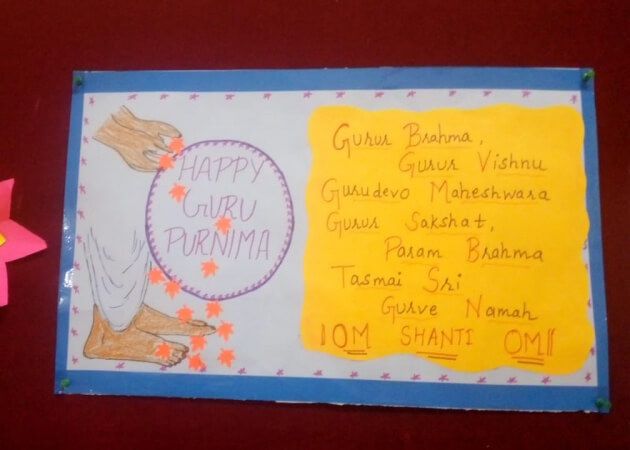 HAPPY
GURU
PURNIMA
Gurur Brahma,
Gurur Vishnu
Gurudevo Maheshwara
Gurur Sakshat,
Param Brahma
Tasmai Sri
Gurve Namah
|OM SHANTI OM||